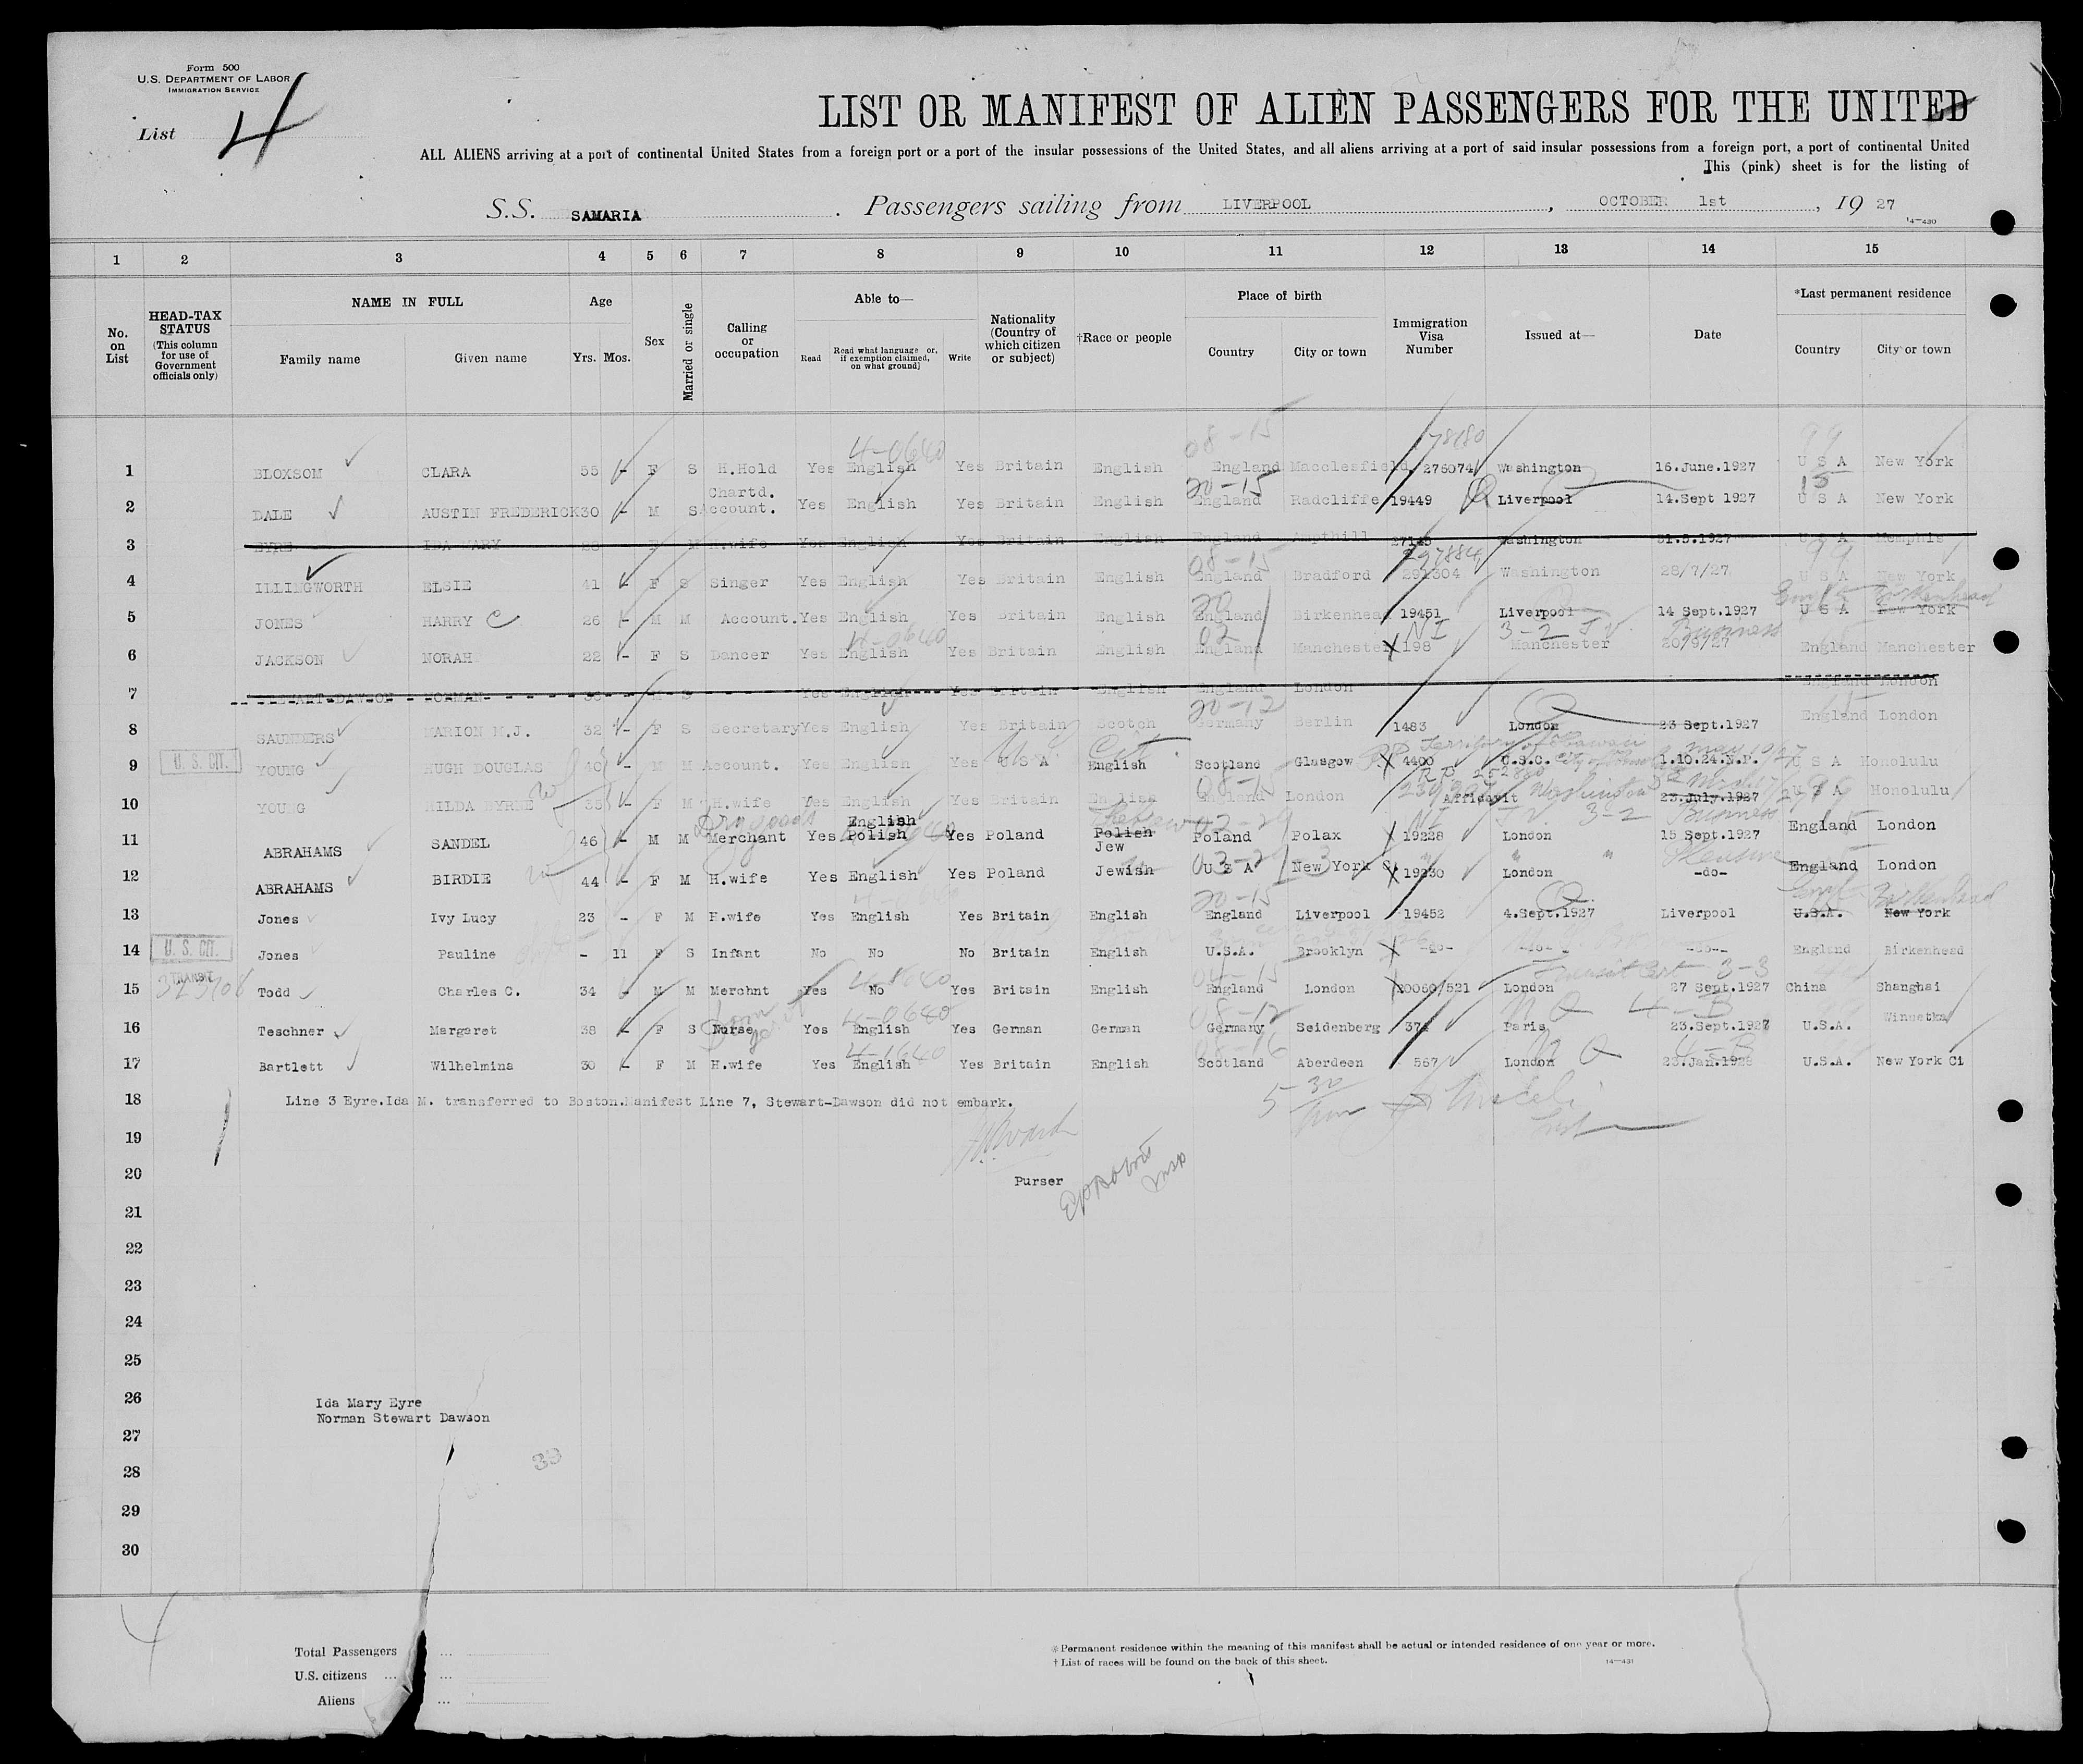 Form 500
U.S. DEPARTMENT OF LABOR
IMMIGRATION SERVICE
List 4
LIST OR MANIFEST OF ALIEN PASSENGERS FOR THE UNITED
ALL ALIENS arriving at a port of continental United States from a foreign port or a port of the insular possessions of the United States, and all aliens arriving at a port of said insular possessions from a foreign port, a port of continental United
This (pink) sheet is for the listing of
S.S. SAMARIA . Passengers sailing from LIVERPOOL , OCTOBER 1st , 19 27
14-430
1 2 3 4 5 6 7 8 9 10 11 12 13 14 15
No. on List
HEAD-TAX STATUS (This column for use of Government officials only)
NAME IN FULL
Family name Given name
Age
Yrs. Mos.
Sex
Married or single
Calling or occupation
Able to—
Read Read what language or, if exemption claimed, on what ground] Write
Nationality (Country of which citizen or subject)
†Race or people
Place of birth
Country City or town
Immigration Visa Number
Issued at—
Date
*Last permanent residence
Country City or town
4-0640 08-15 178180 99
1 BLOXSOM CLARA 55 - F S H.Hold Yes English Yes Britain English England Macclesfield 276074 Washington 16.June.1927 U S A New York
20-15 15
2 DALE AUSTIN FREDERICK 30 - M S Chartd. Account. Yes English Yes Britain English England Radcliffe 19449 Liverpool 14.Sept 1927 U S A New York
3 EYRE IDA MARY 28 F M H.wife Yes English Yes Britain English England Ampthill 27145 Washington 31.5.1927 U S A Memphis
08-15 99
4 ILLINGWORTH ELSIE 41 - F S Singer Yes English Yes Britain English England Bradford 291304 Washington 28/7/27 U S A New York
20 Birkenhead
5 JONES HARRY C 26 - M M Account. Yes English Yes Britain English England Birkenhead 19451 Liverpool 14 Sept.1927 U S A New York
4-0640 02 NI 3-2 Business
6 JACKSON NORAH 22 - F S Dancer Yes English Yes Britain English England Manchester 198 Manchester 20/9/27 England Manchester
7 STEWART-DAWSON NORMAN M S Yes English Yes Britain English England London England London
20-12
8 SAUNDERS MARION M.J. 32 - F S Secretary Yes English Yes Britain Scotch Germany Berlin 1483 London 23 Sept.1927 England London
Cit. Territory of Hawaii
9 U. S. CIT. YOUNG HUGH DOUGLAS 40 - M M Account. Yes English Yes U S A English Scotland Glasgow 4400 C.S.C. 1.10.24.N.P. U S A Honolulu
08-15 Washington
10 YOUNG HILDA BYRNE 35 - F M H.wife Yes English Yes Britain English England London Affidavit 23.July.1927 U S A Honolulu
Dry goods English Hebrew NI 3-2 Business
11 ABRAHAMS SANDEL 46 - M M Merchant Yes Polish Yes Poland Polish Jew Poland Polax 19228 London 15 Sept.1927 England London
Pleasure
12 ABRAHAMS BIRDIE 44 - F M H.wife Yes English Yes Poland Jewish U S A New York 19230 London -do- England London
20-15 Birkenhead
13 Jones Ivy Lucy 23 - F M H.wife Yes English Yes Britain English England Liverpool 19452 4.Sept.1927 Liverpool U.S.A. New York
14 U. S. CIT. Jones Pauline - 11 F S Infant No No No Britain English U.S.A. Brooklyn -do- -do- -do- England Birkenhead
TRANSIT Transit Cert 3-3
15 Todd Charles C. 34 - M M Merchnt Yes No Yes Britain English England London 20060/521 London 27 Sept.1927 China Shanghai
4-0640 08-12 N Q 4-B
16 Teschner Margaret 38 - F S Nurse Yes English Yes German German Germany Seidenberg 374 Paris 23.Sept.1927 U.S.A. Winnetka
4-1640 N Q 4-B
17 Bartlett Wilhelmina 30 - F M H.wife Yes English Yes Britain English Scotland Aberdeen 567 London 23.Jan.1926 U.S.A. New York Ci
18 Line 3 Eyre.Ida M. transferred to Boston.Manifest Line 7, Stewart-Dawson did not embark.
19
20 Purser
21
22
23
24
25
26 Ida Mary Eyre
Norman Stewart Dawson
27
28
29
30
4
Total Passengers ...
U.S. citizens ... ...
Aliens ...
* Permanent residence within the meaning of this manifest shall be actual or intended residence of one year or more.
† List of races will be found on the back of this sheet.
14-431